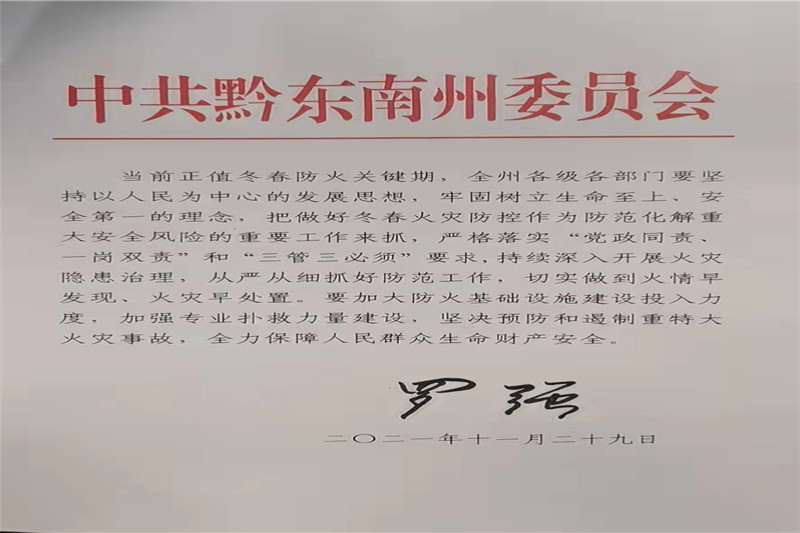 中共黔东南州委员会
当前正值冬春防火关键期，全州各级各部门要坚
持以人民为中心的发展思想，牢固树立生命至上、安
全第一的理念，把做好冬春火灾防控作为防范化解重
大安全风险的重要工作来抓，严格落实“党政同责、
一岗双责”和“三管三必须”要求，持续深入开展火灾
隐患治理，从严从细抓好防范工作，切实做到火情早
发现、火灾早处置。要加大防火基础设施建设投入力
度，加强专业扑救力量建设，坚决预防和遏制重特大
火灾事故，全力保障人民群众生命财产安全。
罗强
二〇二一年十一月二十九日